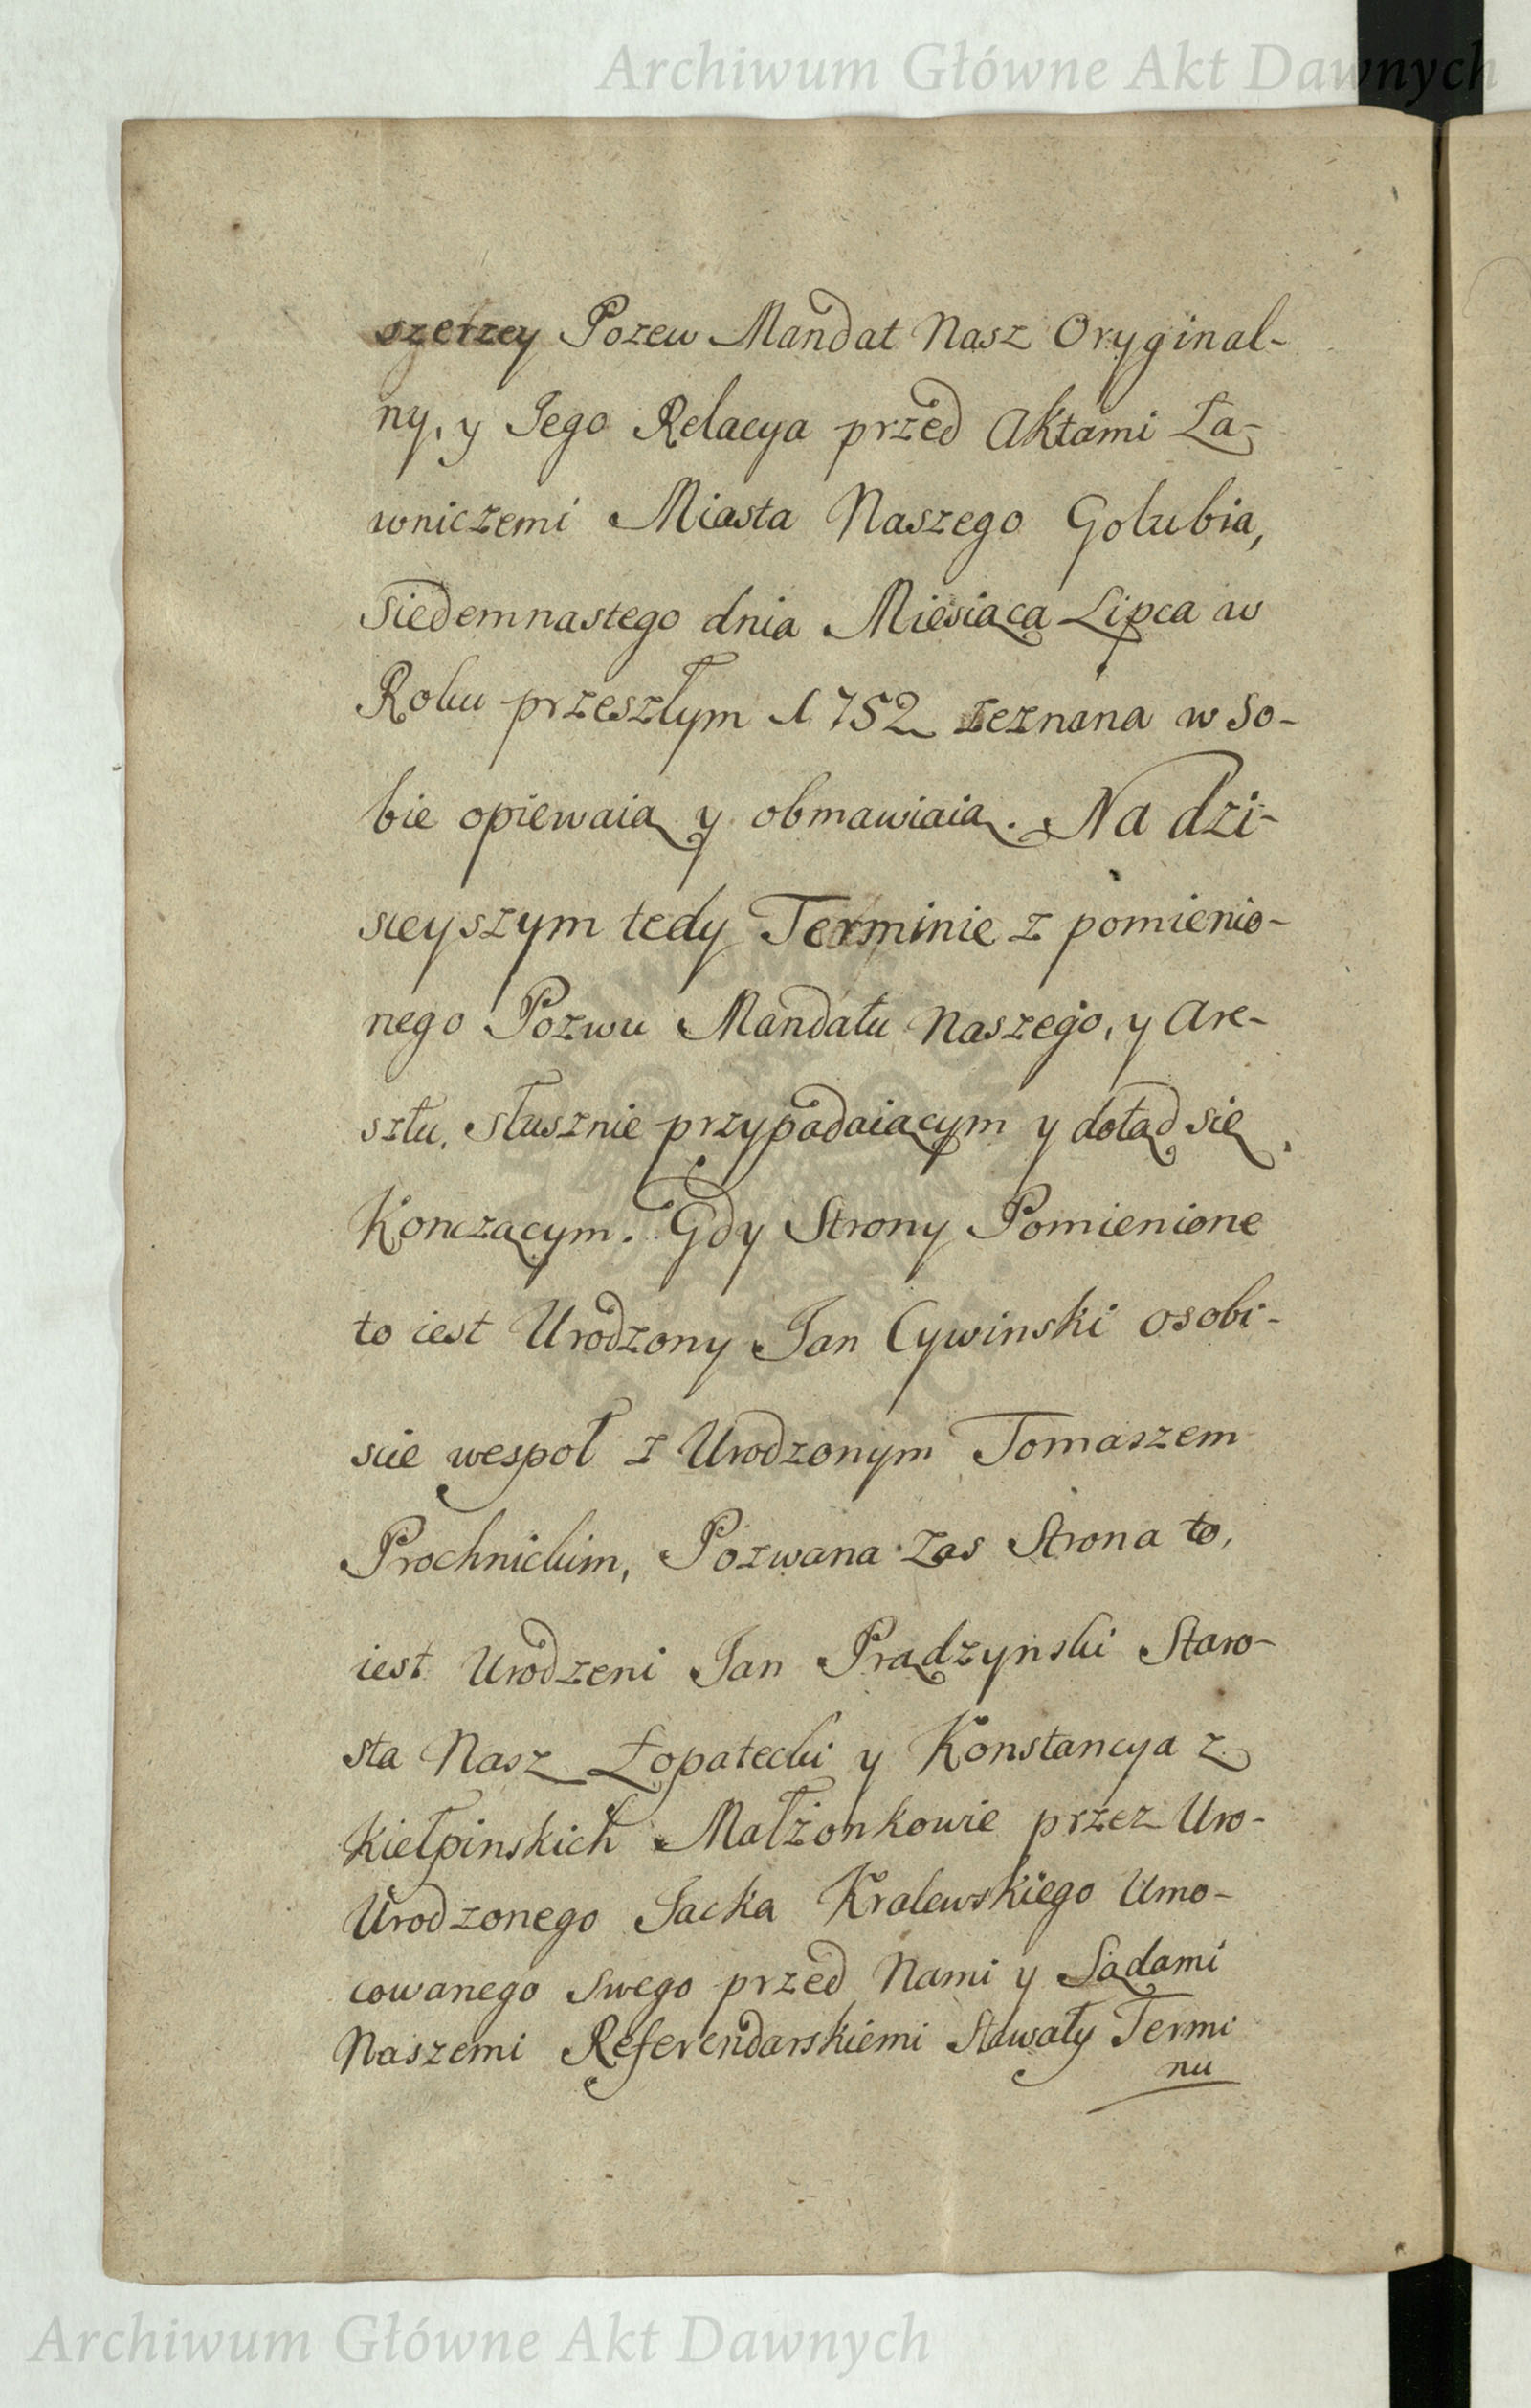 Archiwum Główne Akt Dawnych
szerzey Pozew Mandat Nasz Oryginal-
ny, y Jego Relacya przed Aktami Ła-
wniczemi Miasta Naszego Golubia,
Siedemnastego dnia Miesiąca Lipca w
Roku przeszłym 1752 zeznana w So-
bie opiewaią y obmawiaią. Na dzi-
sieyszym tedy Terminie z pomienio-
nego Pozwu Mandatu Naszego, y Are-
sztu, słusznie przypadaiącym y dotąd się
Kończącym. Gdy Strony Pomienione
to iest Urodzony Jan Cywinski osobi-
scie wespoł z Urodzonym Tomaszem
Prochnickim, Pozwana Zas Strona to,
iest Urodzeni Jan Prądzynski Staro-
sta Nasz Łopatecki y Konstancya z
Kiełpinskich Małżonkowie przez Uro-
Urodzonego Jacka Kralewskiego Umo-
cowanego Swego przed Nami y Sądami
Naszemi Referendarskiemi Stawały Termi
nu
Archiwum Główne Akt Dawnych